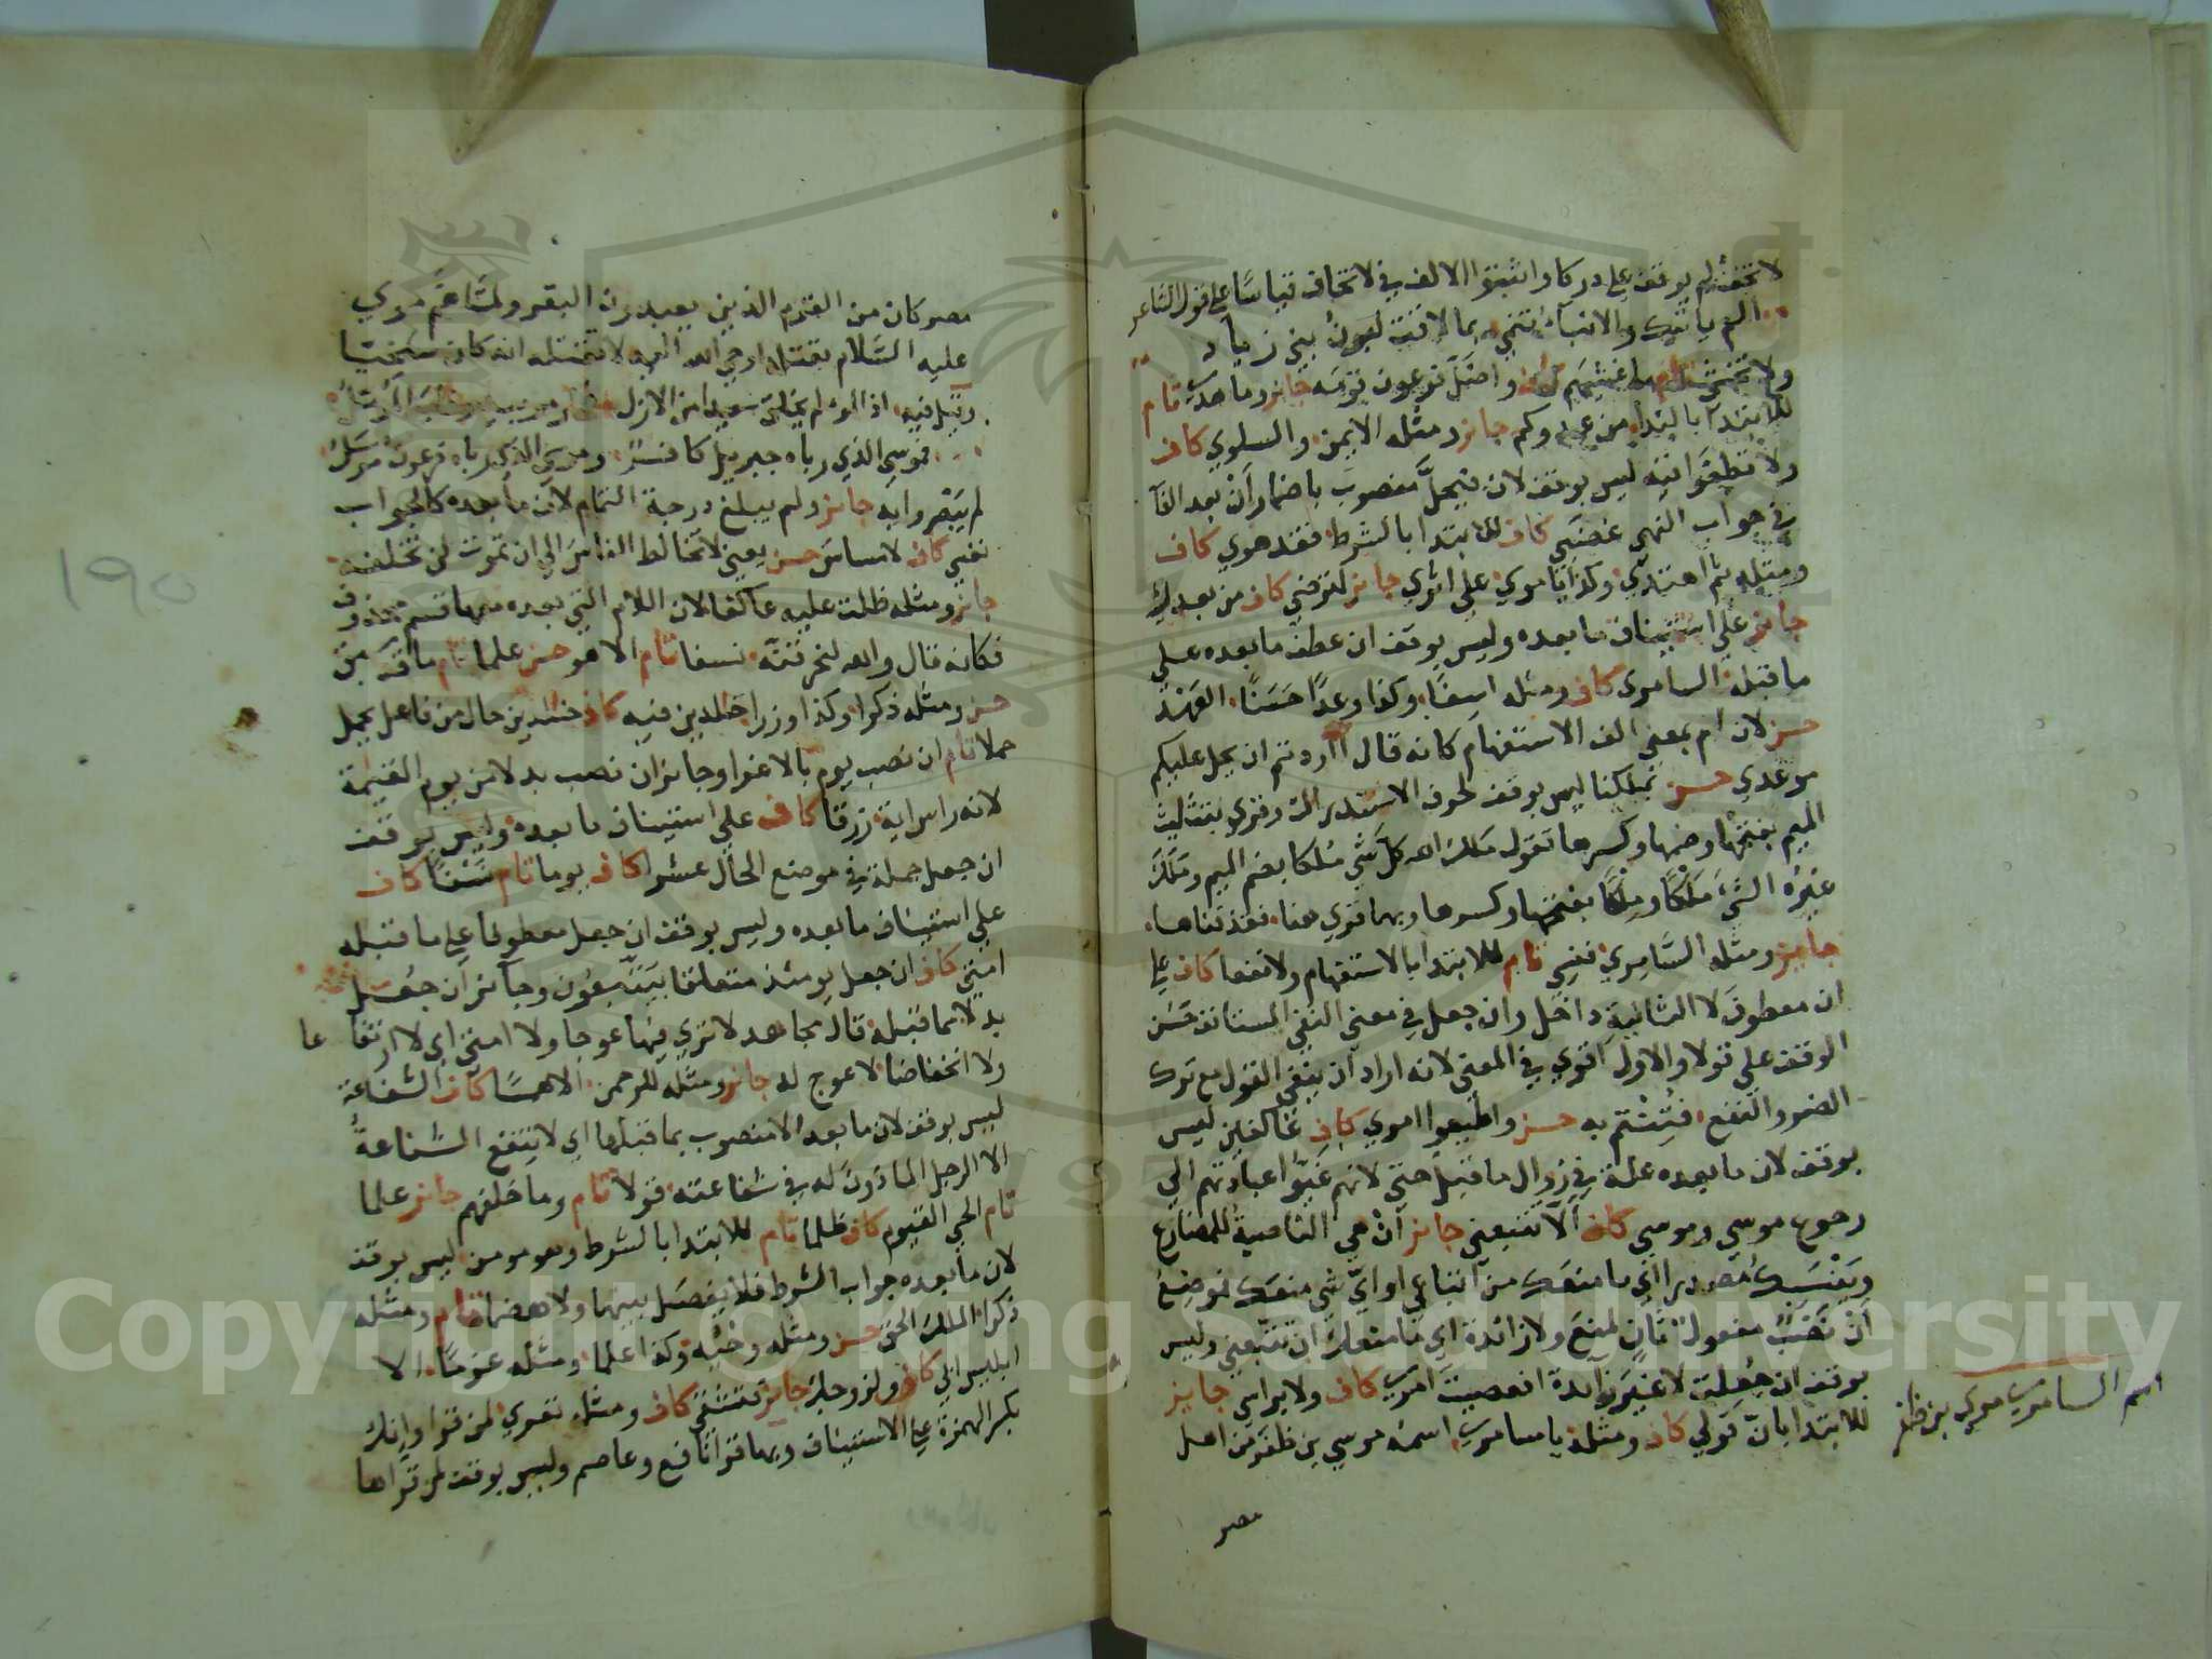 لا تخف لم يوقف على دركا واثبتوا الالف في لا تخاف قياسا على قول الشاعر
الم ياتيك والانباء تنمي بما لاقت لبون بني زياد
ولا تخشى تام ما غشيهم كاف واضل فرعون قومه جايز وما هدى تام
للابتدا بالندا من عدوكم جايز ومثله الايمن والسلوي كاف
ولا تطغوا فيه ليس بوقف لان فيحل منصوب باضمار ان بعد الفا
في جواب النهي غضبي كاف للابتدا بالشرط فقد هوي كاف
ومثله ثم اهتدي وكذا ياموسي علي اثري جايز لترضي كاف من بعدك
جايز علي استيناف ما بعده وليس بوقف ان عطف ما بعده علي
ما قبله السامري كاف ومثله اسفا وكذا وعدا حسنا العهد
حسن لان ام بمعني الف الاستفهام كانه قال أاردتم ان يحل عليكم
موعدي حسن بملكنا ليس بوقف لحرف الاستدراك وقري بتثليث
الميم بفتحها وضمها وكسرها تقول ملك الله كل شي ملكا بضم الميم وملك
غيره الشي ملكا وملكا بفتحها وكسرها وبهما قري هنا فقذفناها
جايز ومثله السامري فنسي تام للابتدا بالاستفهام ولا نفعا كاف علي
ان معطوف لا الثانية داخل وان جعل في معني النفي المستانف حسن
الوقف علي قولا والاول اقوي في المعني لانه اراد ان ينفي القول مع ترك
الضر والنفع فتنتم به حسن واطيعوا امري كاف عاكفين ليس
بوقف لان ما بعده علة في زوال ما قبل حتي لانهم غيوا عبادتهم الي
رجوع موسي وموسي كاف الا تتبعني جايز ان هي الناصبة للمضارع
ويسبك مصدرا اي ما منعك من اتباعي او اي شي منعك فموضع
ان نصب مفعول ثان لمنع ولا زائدة اي ما منعك ان تتبعني وليس
بوقف ان جعلت لا غير زائدة افعصيت امري كاف ولا براسي جايز
للابتدا بان قولي كاف ومثله ياسامري اسمه موسي بن ظفر من اهل
مصر
اسم السامري موسي بن ظفر
مصر كان من القوم الذين يعبدون البقر ولما هم موسي
عليه السلام بقتله اوحي الله اليه لا تقتله انه كان سخيا
وقيل فيه اذا المرء لم يخلق سعيدا من الازل
فموسي الذي رباه جبريل كافر وموسي الذي رباه فرعون مرسل
لم يبصروا به جايز ولم يبلغ درجة التمام لان ما بعده كالجواب
نفسي كاف لا مساس حسن يعني لا تخالط الناس الي ان تموت لن تخلفه
جايز ومثله ظلت عليه عاكفا لان اللام التي بعده معها قسم محذوف
فكانه قال والله لنحرقنه نسفا تام الا هو حسن علما تام ما قد سبق
حسن ومثله ذكرا وكذا وزرا خالدين فيه كاف خالدين حال من فاعل يحمل
حملا تام ان نصب يوم بالاغرا وجايز ان نصب بدلا من يوم القيمة
لانه راس اية زرقا كاف علي استيناف ما بعده وليس بوقف
ان جعل جملة في موضع الحال عشرا كاف يوما تام نسفا كاف
علي استيناف ما بعده وليس بوقف ان جعل معطوفا علي ما قبله
امتي كاف ان جعل يومئذ متعلقا بيتبعون وجايز ان جعل
بدلا مما قبله قال مجاهد لا تري فيها عوجا ولا امتي اي لا ارتفاعا
ولا انخفاضا لا عوج له جايز ومثله للرحمن الا همسا كاف الشفاعة
ليس بوقف لان ما بعد الا منصوب بما قبلها اي لا تنفع الشفاعة
الا الرجل الماذون له في شفاعته قولا تام وما خلفهم جايز علما
تام الحي القيوم كاف ظلما تام للابتدا بالشرط وهو مومن ليس بوقف
لان ما بعده جواب الشرط فلا يفصل بينهما ولا هضما تام ومثله
ذكرا الملك الحق حسن ومثله وحيه وكذا علما ومثله عزما الا
ابليس ابي كاف ولزوجك جايز فتشقي كاف ومثله تعري لمن قرا وانك
بكسر الهمزة علي الاستيناف وبها قرا نافع وعاصم وليس بوقف لمن قراها
190
Copyright © King Saud University